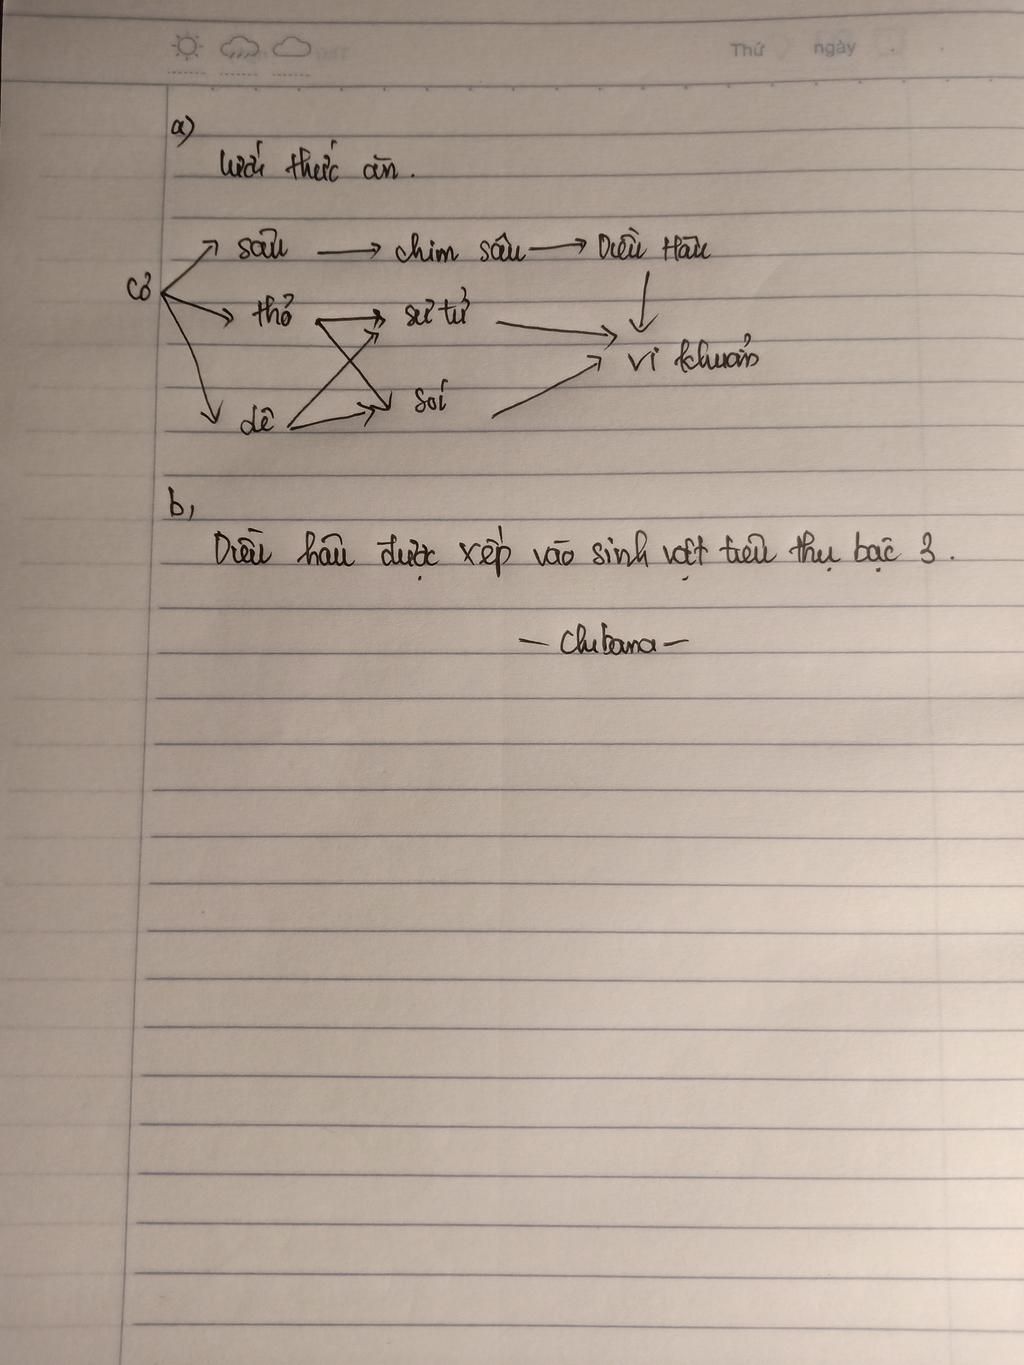 Thứ ngày
a)
lưới thức ăn.
sâu → chim sâu → Diều Hâu
cỏ
thỏ → sư tử
vi khuẩn
dê → sói
b,
Diều hâu được xếp vào sinh vật tiêu thụ bậc 3.
- Chibana -